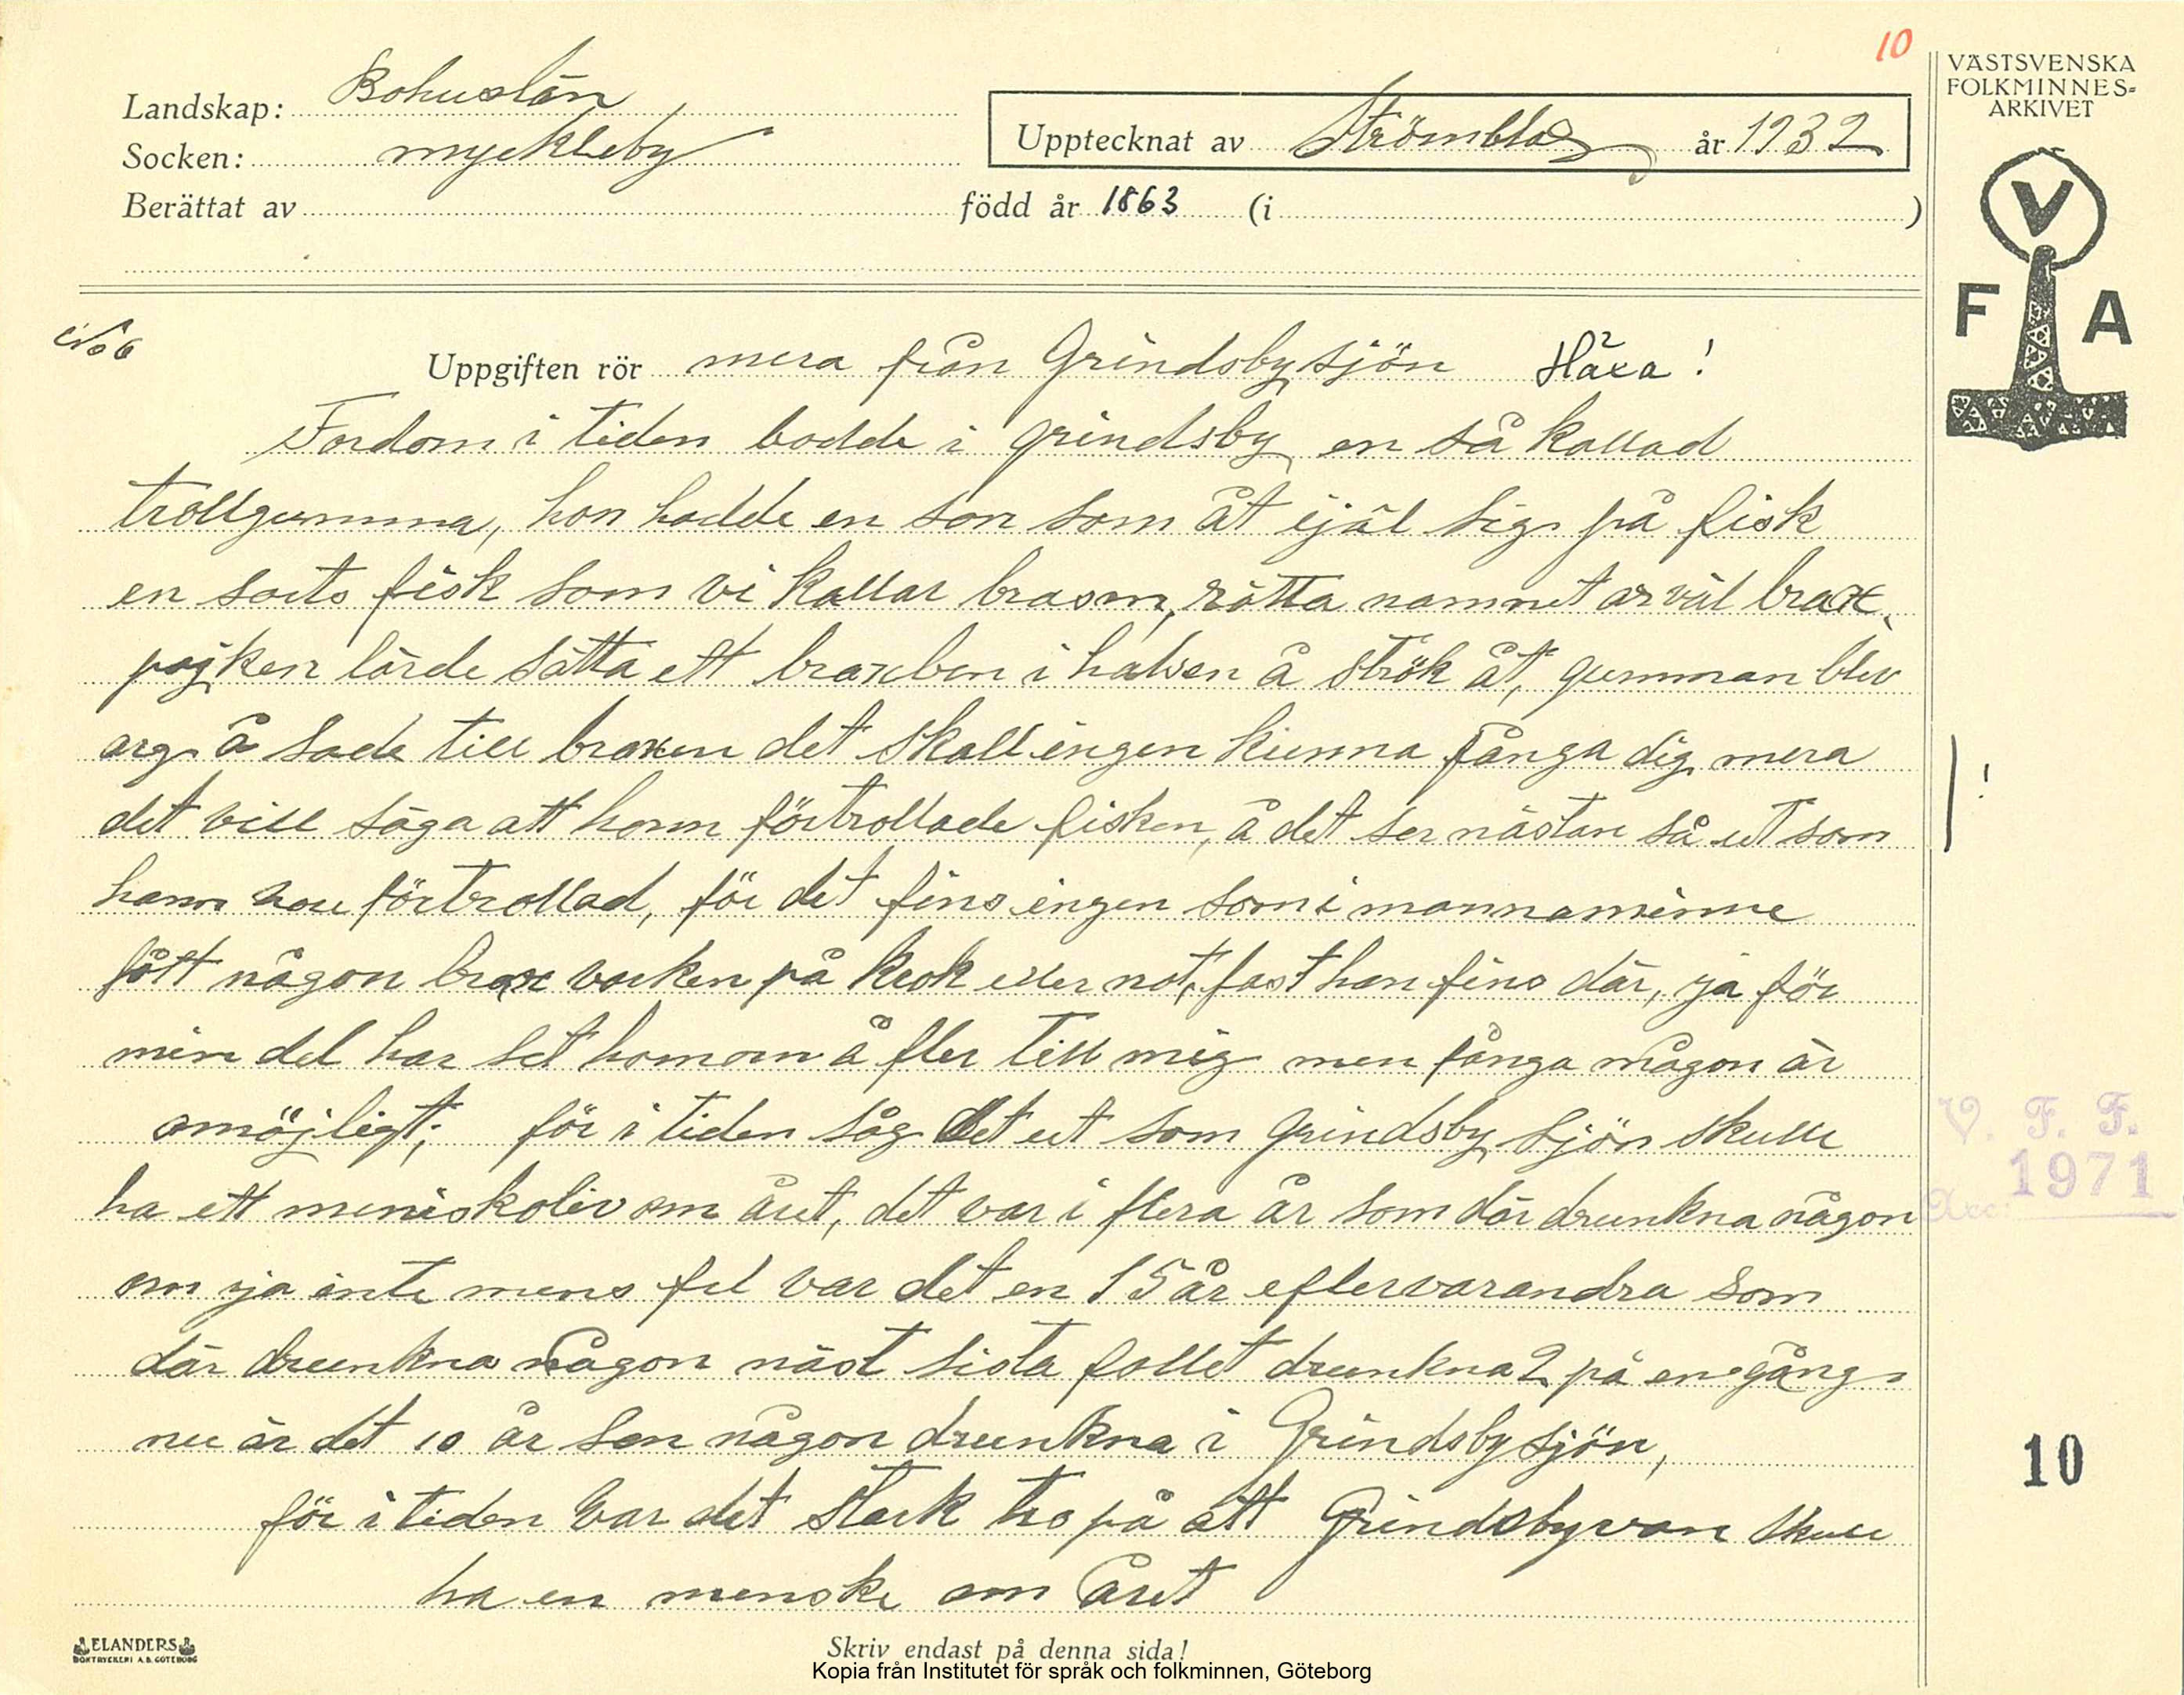 10
VÄSTSVENSKA
FOLKMINNES-
ARKIVET
Landskap: Bohuslän
Socken: myckleby
Upptecknat av Strömblad år 1932
Berättat av född år 1863 (i )
V
F A
No 6
Uppgiften rör mera från Grindsby sjön Häxa !
Fordom i tiden bodde i grindsby en så kallad
trollgumma, hon hadde en son som åt ijäl sig på fisk
en sorts fisk som vi kallar brasm, rätta namnet ar väl brax,
pojken lärde sätta ett braxben i halsen å strök åt, gumman blev
arg å sade till braxen det skall ingen kunna fånga dig mera
det vill säga att honn förtrollade fisken, å det ser nästan så ut som
hann vore förtrollad, för det fins ingen som i mannaminne
fått någon brax varken på krok eller not, fast han fins där, ja för
min del har set honom å fler till mig men fånga någon är
omöjligt; för i tiden såg det ut som grindsby sjön skulle
ha ett meniskoliv om året, det var i flera år som där drunkna någon
om ja inte mins fel var det en 15 år eftervarandra som
där drunkna någon näst sista fallet drunkna 2 på en gång
nu är det 10 år sen någon drunkna i Grindsby sjön,
för i tiden var det stark tro på att Grindsbyvan skulle
ha en menske om året
!
V. F. F.
1971
Acc:
10
ELANDERS
BOKTRYCKERI A.B. GÖTEBORG
Skriv endast på denna sida!
Kopia från Institutet för språk och folkminnen, Göteborg